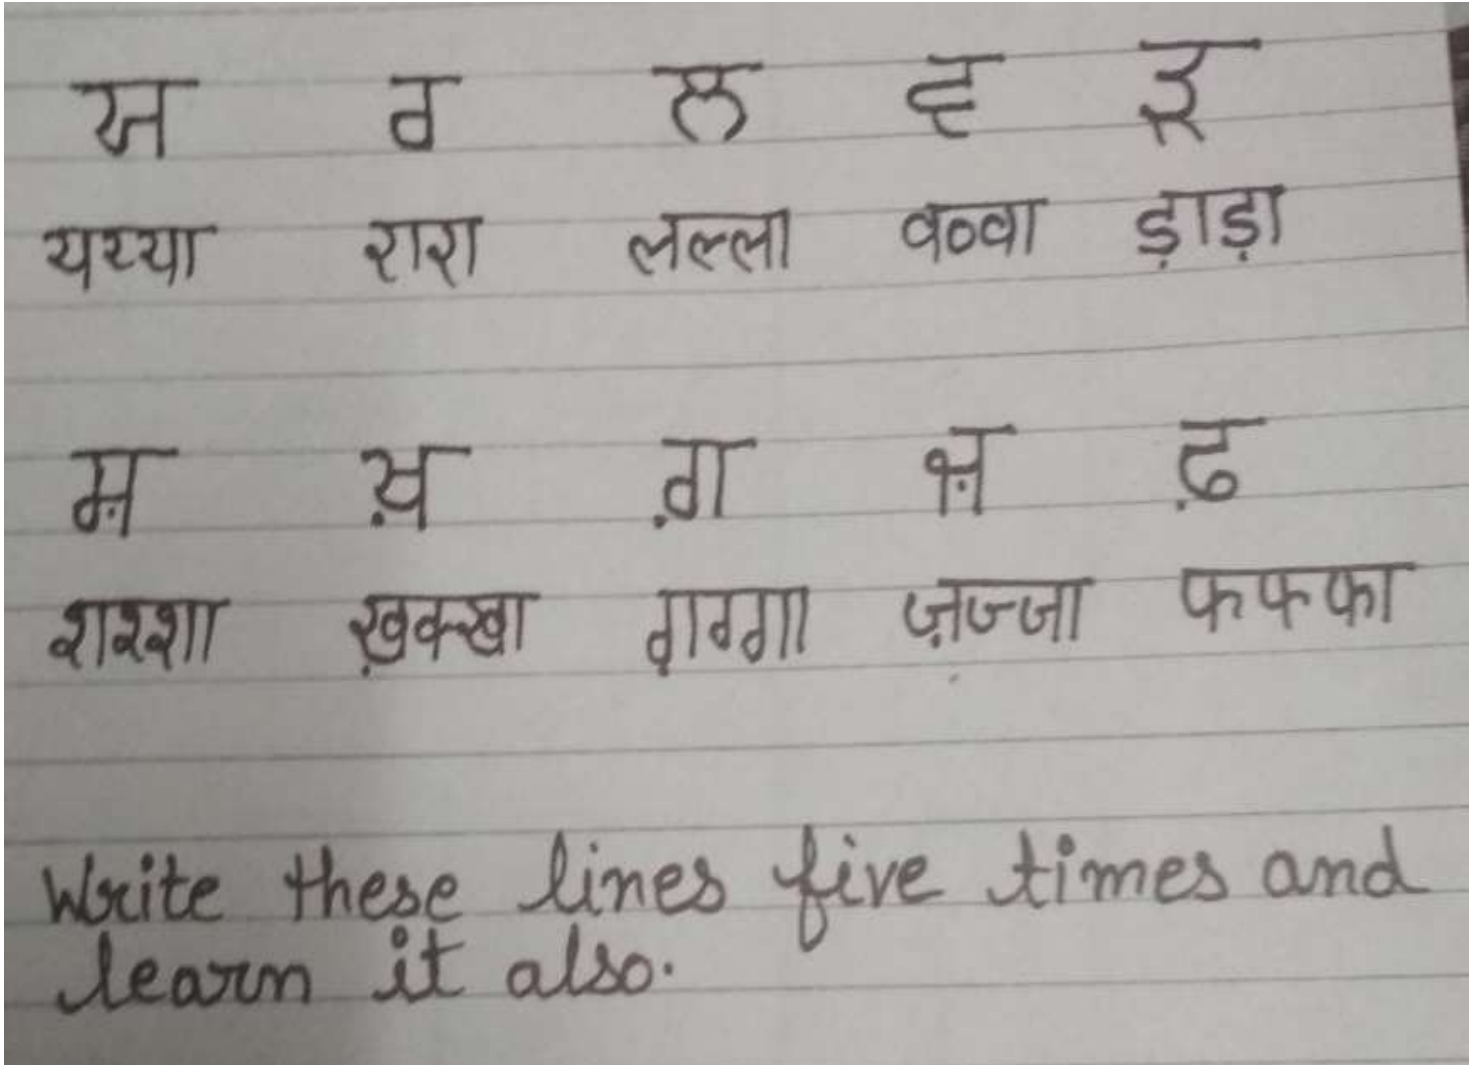 ਯ ਰ ਲ ਵ ੜ
यय्या रारा लल्ला वव्वा ड़ाड़ा
ਸ਼ ਖ਼ ਗ਼ ਜ਼ ਫ਼
शश्शा ख़क्खा ग़ग्गा ज़ज्जा फफ्फा
Write these lines five times and
learn it also.